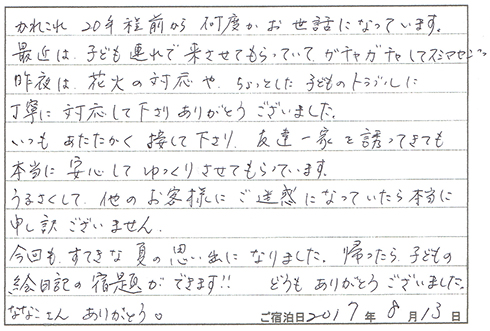 かれこれ 20年程前から 何度か お世話になっています。
最近は、子ども連れで来させてもらっていて、ガチャガチャしてスミマセン
昨夜は、花火の対応や、ちょっとした子どものトラブルに
丁寧に対応して下さりありがとうございました。
いつもあたたかく接して下さり、友達一家を誘ってきても
本当に安心してゆっくりさせてもらっています。
うるさくして、他のお客様にご迷惑になっていたら本当に
申し訳ございません。
今回も、すてきな夏の思い出になりました。帰ったら、子どもの
絵日記の宿題ができます!! どうもありがとうございました。
ななこさん ありがとう。 ご宿泊日2017年8月13日